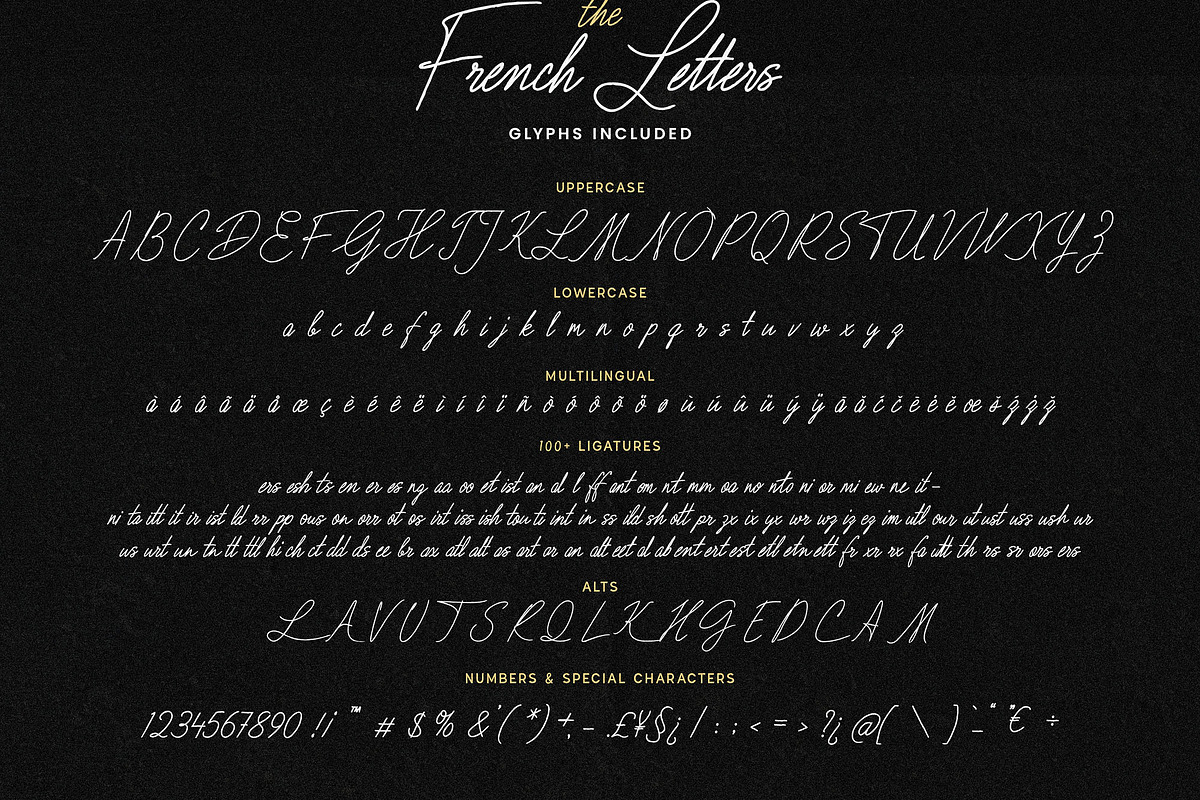 the
French Letters
GLYPHS INCLUDED
UPPERCASE
ABCDEFGHIJKLMNOPQRSTUVWXYZ
LOWERCASE
a b c d e f g h i j k l m n o p q r s t u v w x y z
MULTILINGUAL
à á â ã ä å æ ç è é ê ë ì í î ï ñ ò ó ô õ ö ø ù ú û ü ý ÿ
100+ LIGATURES
ers esh ts en er es ng aa oo et ist an al l ff ant om nt mm oa no nto ni or mi ew ne it –
ni ta itt it ir ist ld rr pp ous on orr ot os irt iss ish tou ti int in ss ild sh ott pr zx ix yx wr wz ig eg im utl our ut ust uss ush ur
us urt un tn tt ttl hi ch ct dd ds ee br ax atl alt as art ar an alt eet al ab ent ert est etl etn ett fr xr rx fa utt th rs sr ors ers
ALTS
LAVUTSRQLKHGEDCAM
NUMBERS & SPECIAL CHARACTERS
1234567890 !¡ ™ # $ % & ' ( * ) + , – . £ ¥ § ¿ / : ; < = > ? ¿ @ ( \ ) ` _ “ ” € ÷